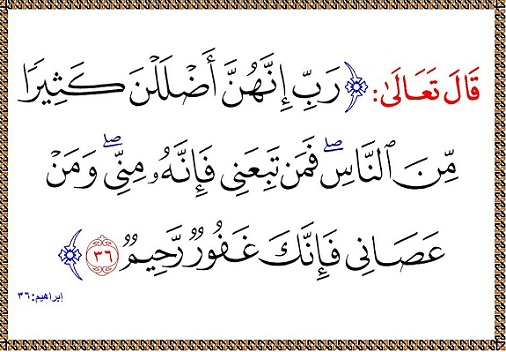 قَالَ تَعَالَىٰ: ﴿ رَبِّ إِنَّهُنَّ أَضْلَلْنَ كَثِيرًا
مِّنَ ٱلنَّاسِۖ فَمَن تَبِعَنِي فَإِنَّهُۥ مِنِّيۖ وَمَنْ
عَصَانِي فَإِنَّكَ غَفُورٌ رَّحِيمٌ ٣٦ ﴾
إبراهيم: ٣٦